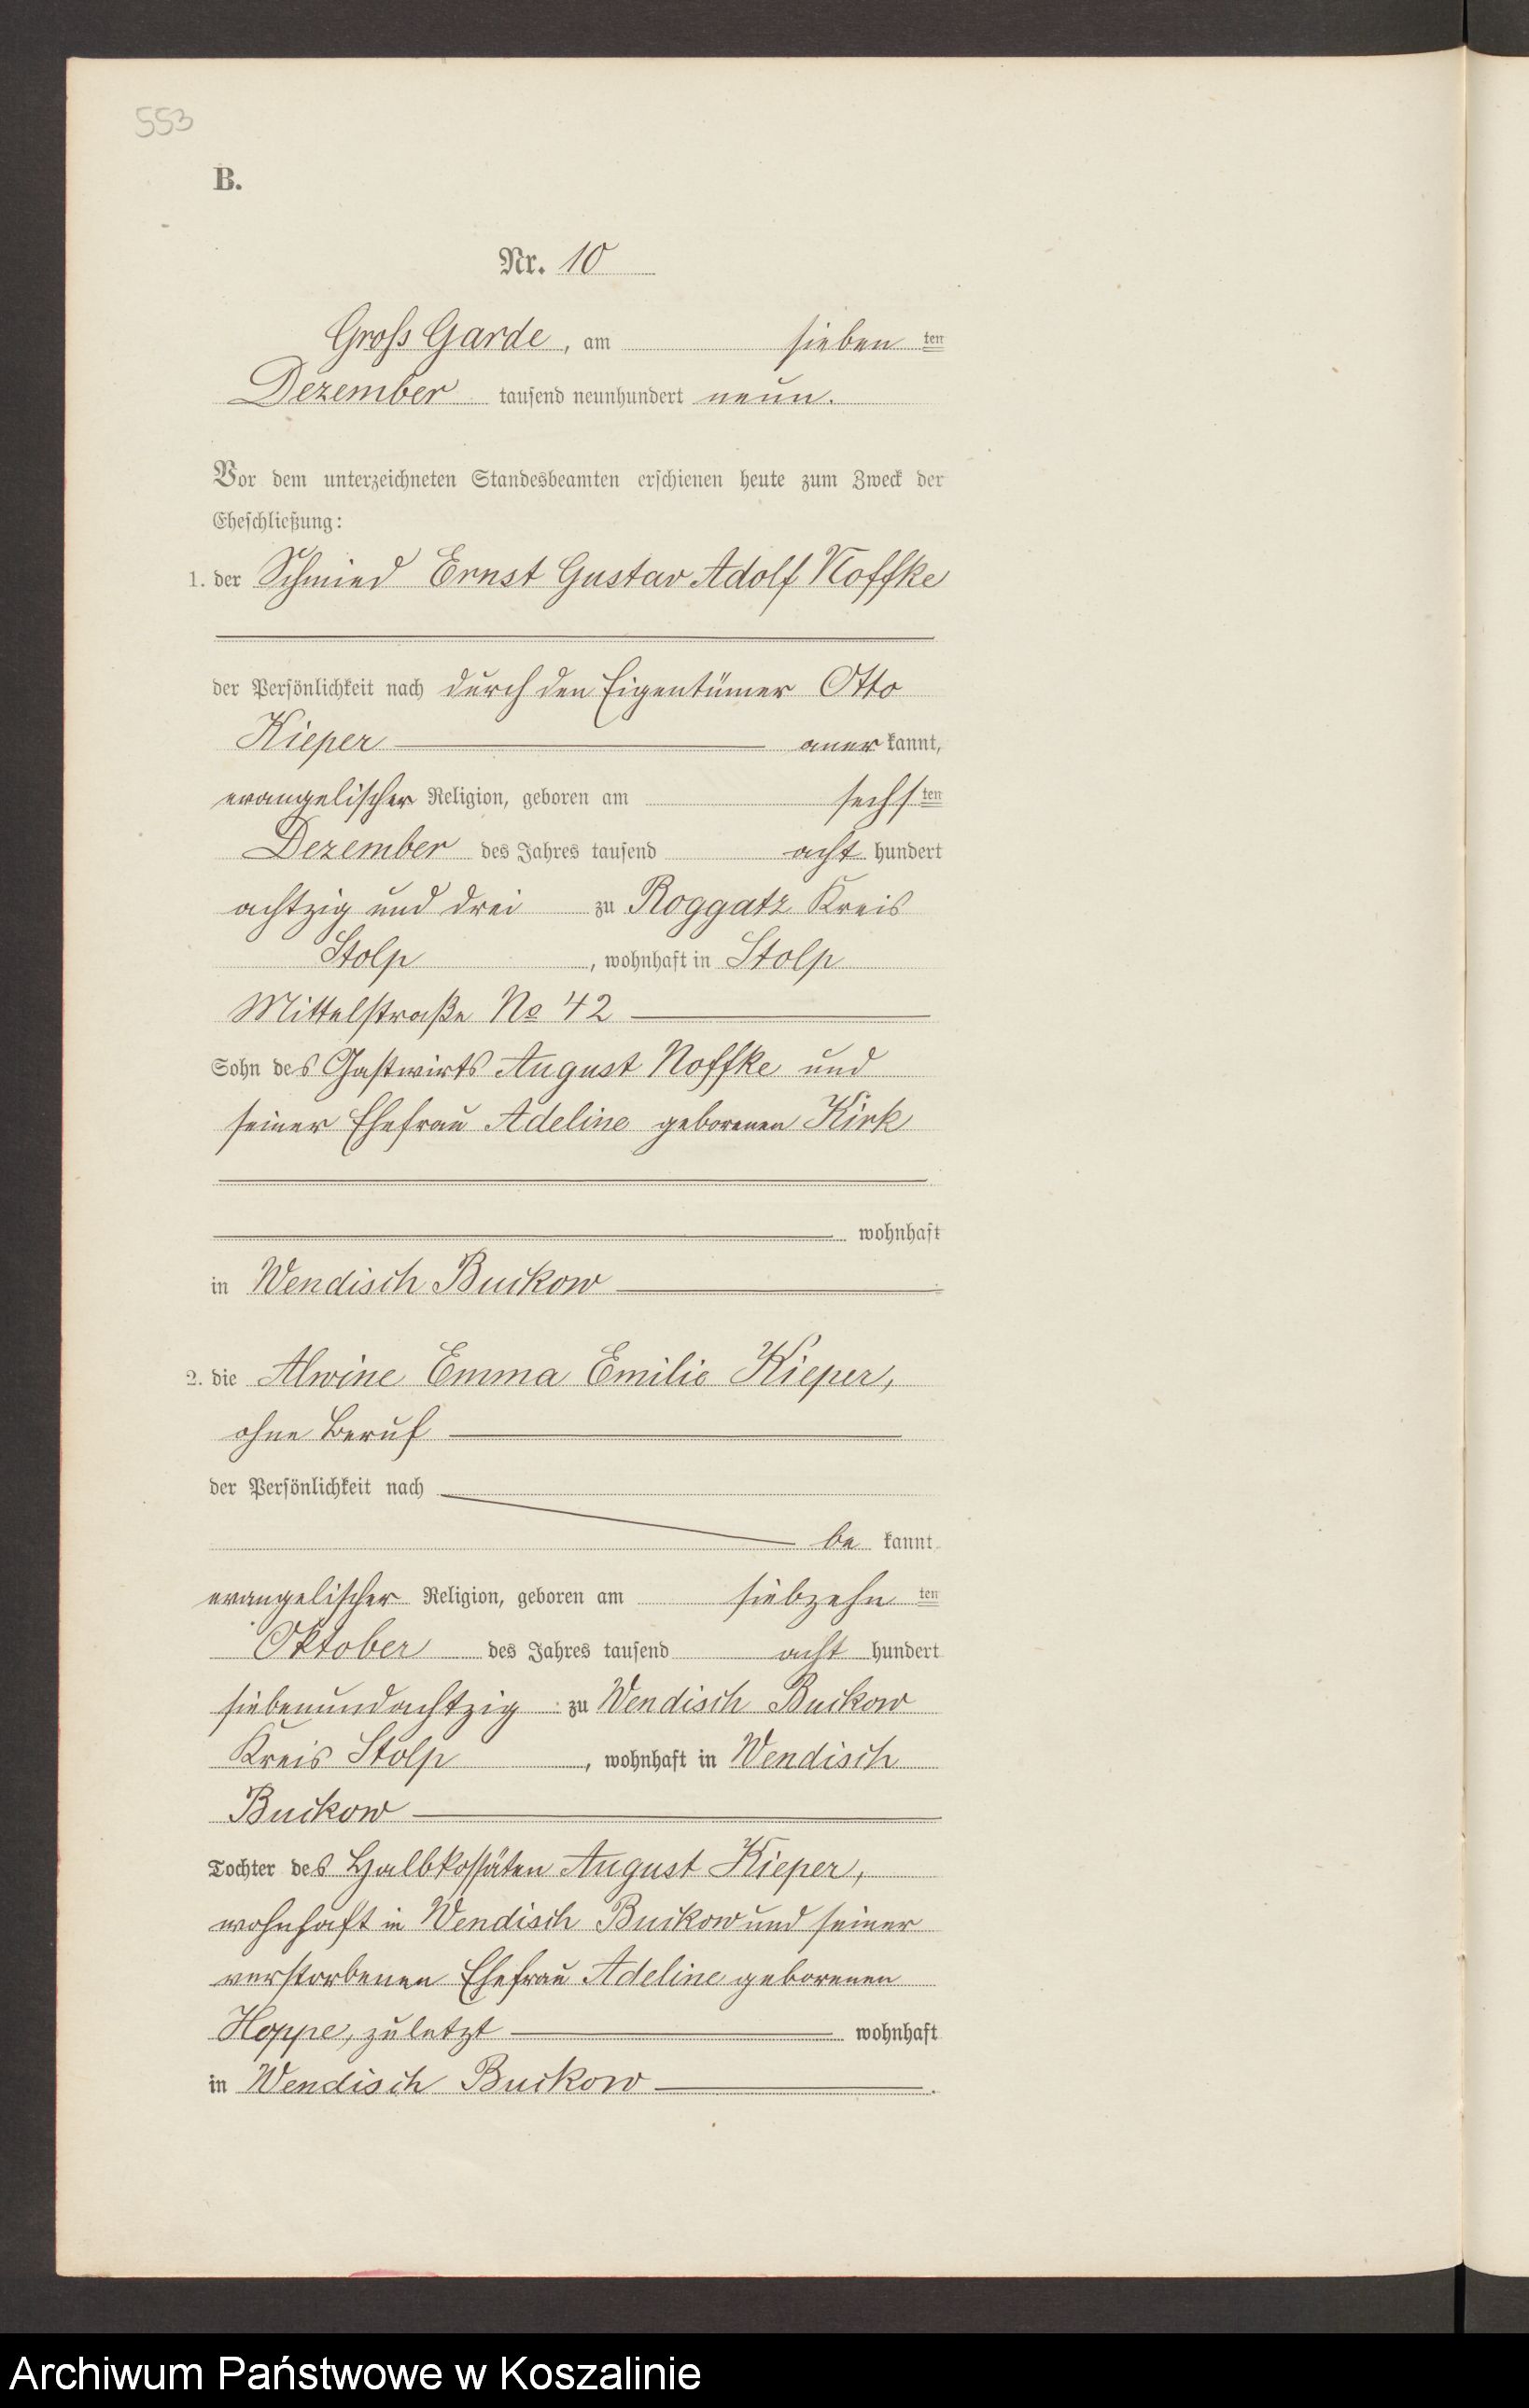 553
B.
Nr. 10
Gross Garde, am sieben ten
Dezember tausend neunhundert neun.
Vor dem unterzeichneten Standesbeamten erschienen heute zum Zweck der
Eheschließung:
1. der Schmied Ernst Gustav Adolf Noffke
der Persönlichkeit nach durch den Eigentümer Otto
Kieper aner kannt,
evangelischer Religion, geboren am sechs ten
Dezember des Jahres tausend acht hundert
achtzig und drei zu Roggatz Kreis
Stolp, wohnhaft in Stolp
Mittelstraße No 42
Sohn des Gastwirts August Noffke und
seiner Ehefrau Adeline geborenen Kirk
wohnhaft
in Wendisch Buckow
2. die Alwine Emma Emilie Kieper,
ohne Beruf
der Persönlichkeit nach
be kannt
evangelischer Religion, geboren am siebzehn ten
Oktober des Jahres tausend acht hundert
siebenundachtzig zu Wendisch Buckow
Kreis Stolp, wohnhaft in Wendisch
Buckow
Tochter des Halbkossäten August Kieper,
wohnhaft in Wendisch Buckow und seiner
verstorbenen Ehefrau Adeline geborenen
Hoppe, zuletzt wohnhaft
in Wendisch Buckow.
Archiwum Państwowe w Koszalinie